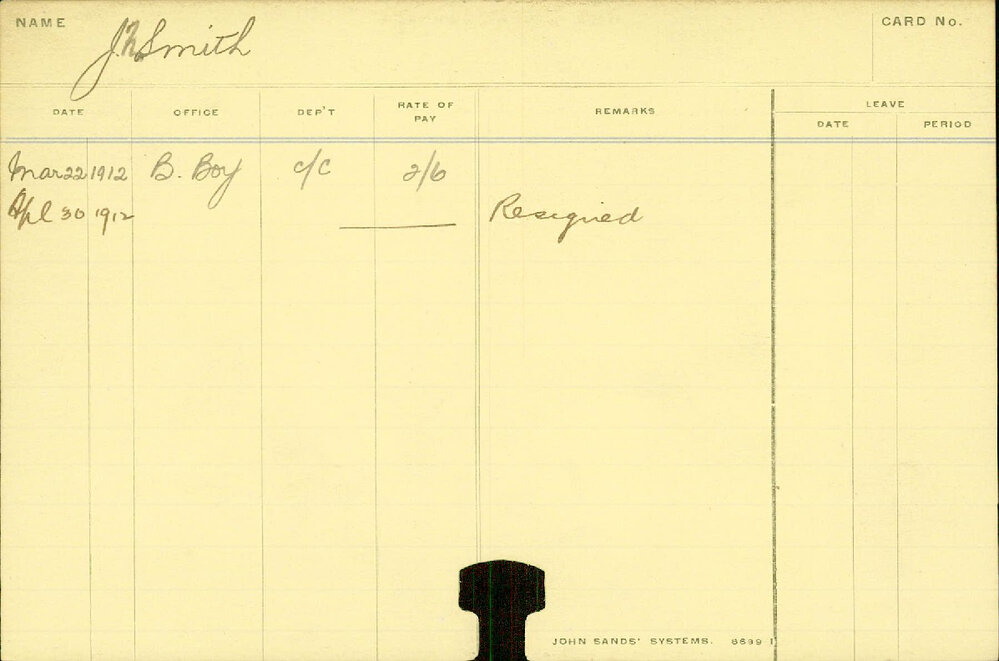 NAME J.N Smith CARD No.
LEAVE
DATE OFFICE DEP'T RATE OF PAY REMARKS DATE PERIOD
Mar 22 1912 B. Boy c/c 2/6
Apl 30 1912 Resigned
JOHN SANDS' SYSTEMS.